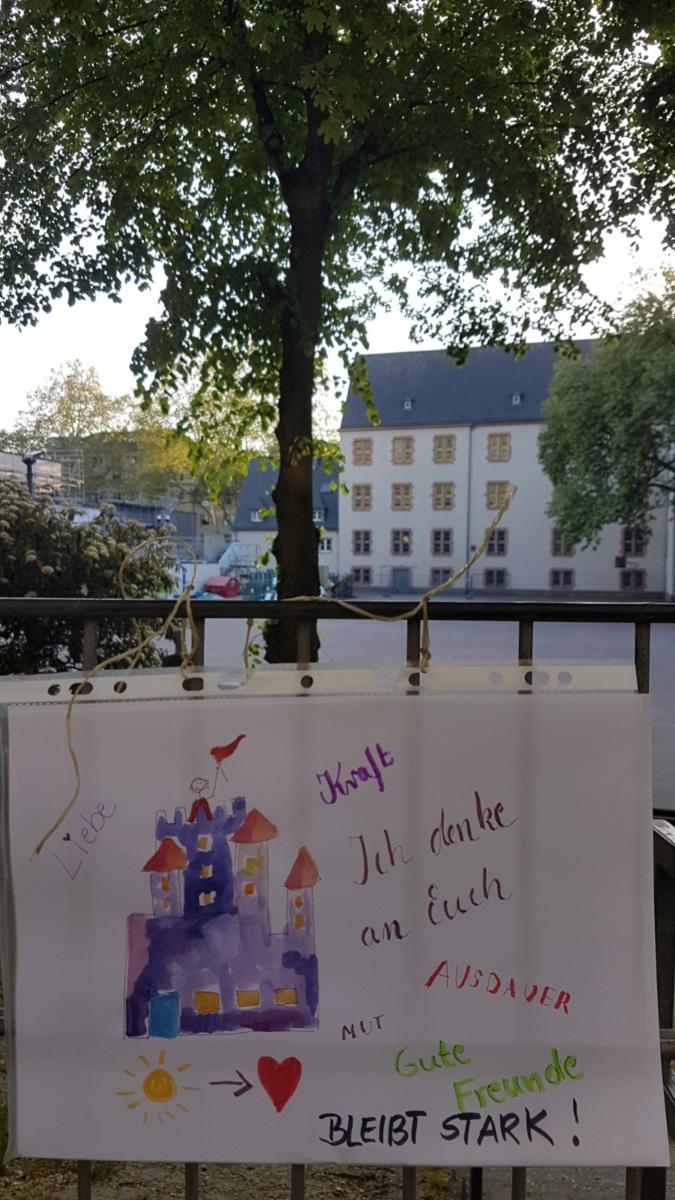 Kraft
Liebe
Ich denke
an Euch
AUSDAUER
MUT
Gute
Freunde
BLEIBT STARK!